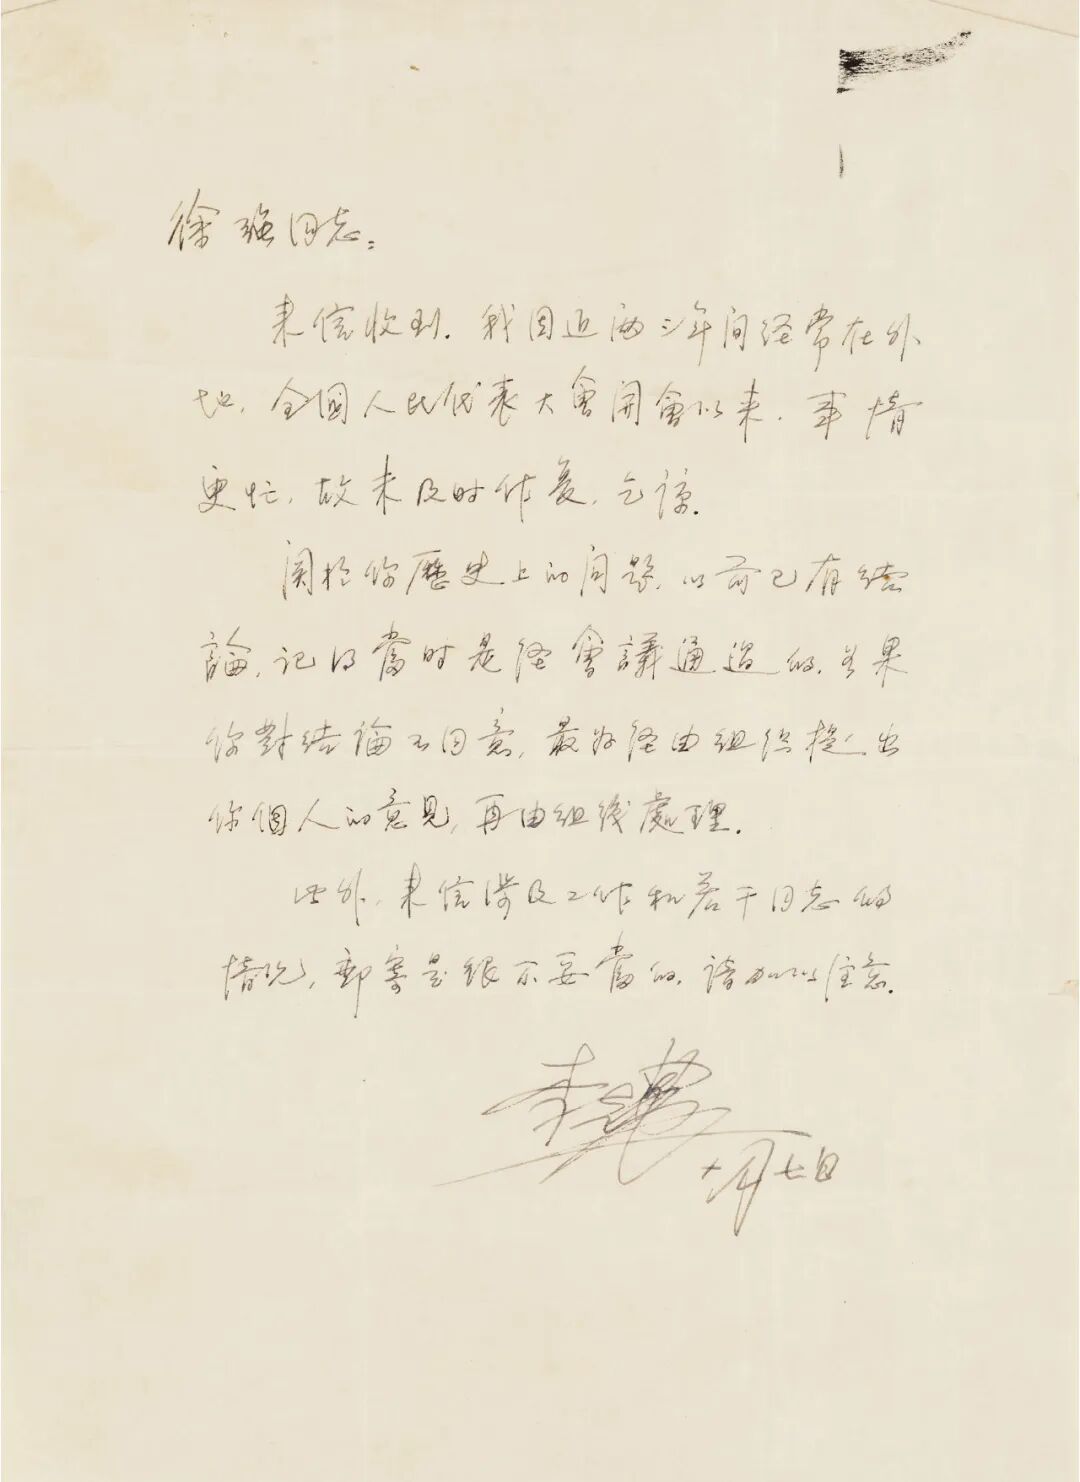 徐強同志：
来信收到．我因近两三年间经常在外
地，全國人民代表大會開會以来．事情
更忙．故未及时作复．乞谅．
関於你歷史上的问题．以前已有结
論．记得當时是经會議通過的．若果
你對结論不同意．最好经由组织提出
你個人的意見，再由组织處理．
此外．来信涉及工作和若干同志的
情况，郵寄是很不妥當的．请加以注意．
十月七日